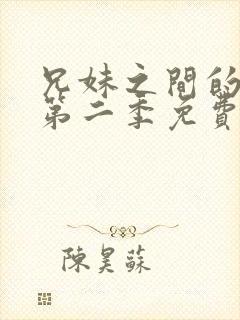 兄妹之間的
第二季免費
陳昊蘇